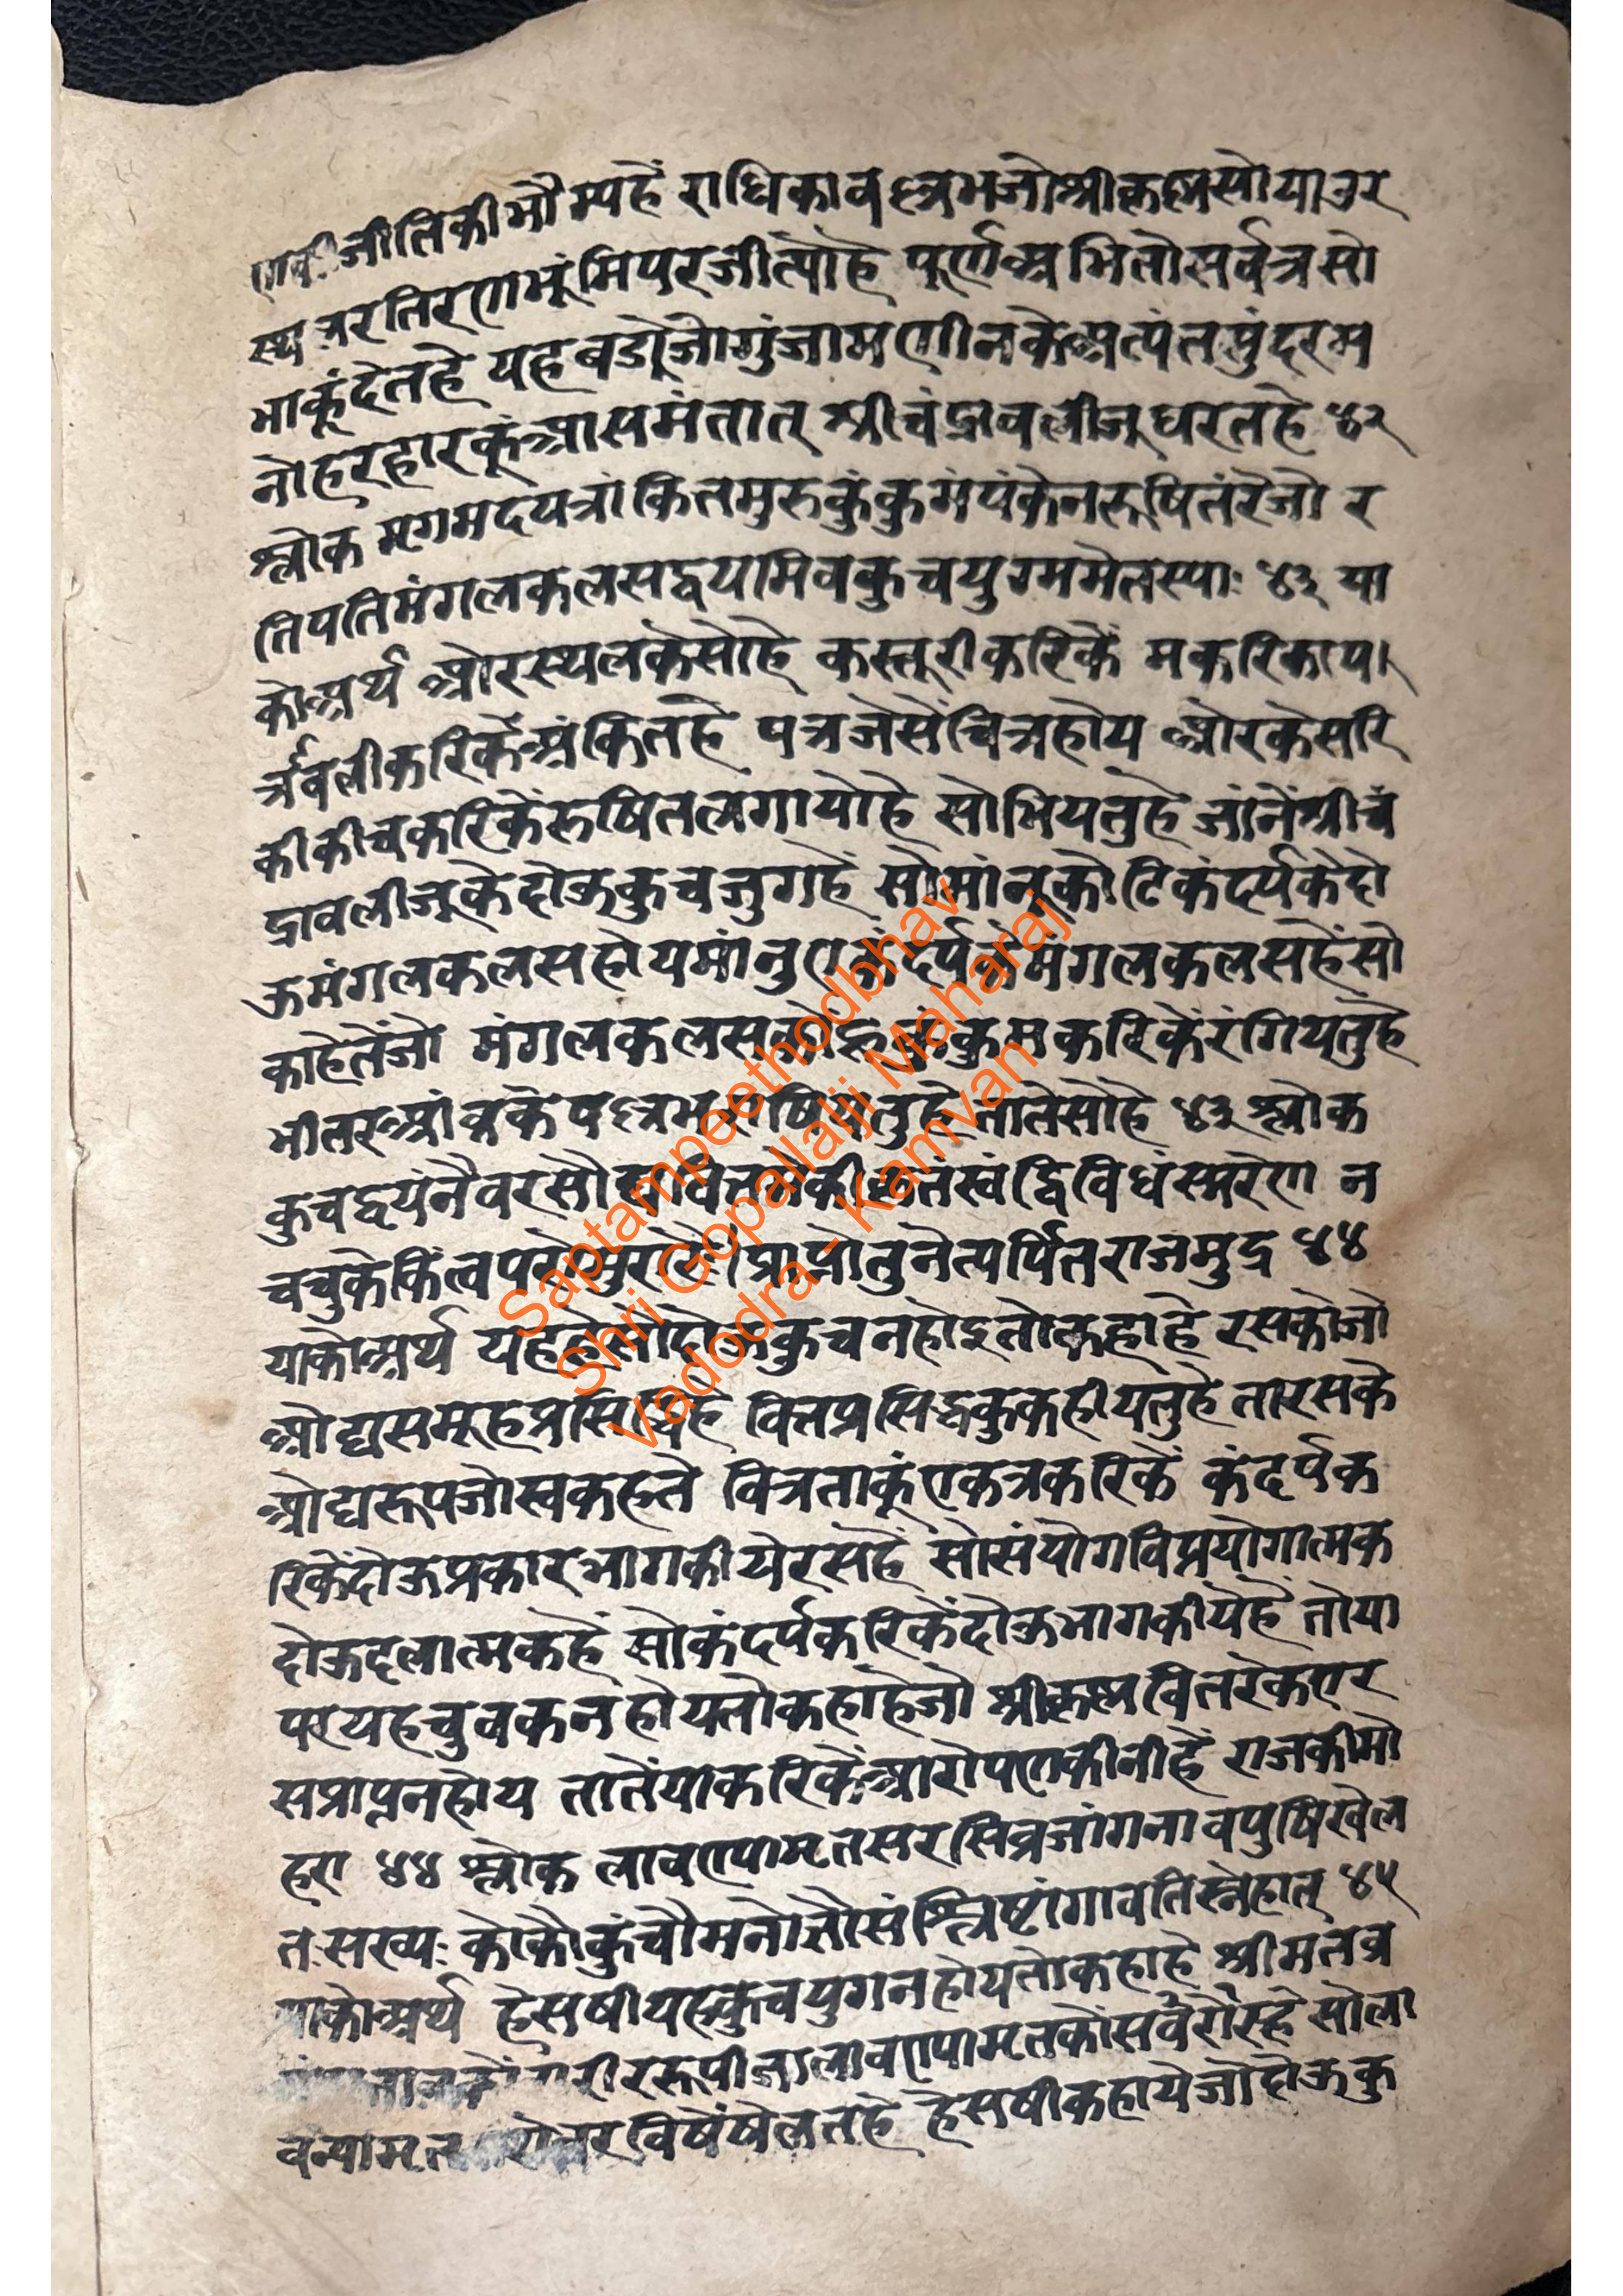 जीतिकीभौम्यहैं राधिकावल्लभजोश्रीकृष्णसोयाउर
स्थ रतिरणभूंमिपरजीत्यौहै पूर्णअभितौसर्वत्रसो
भाकूंदेतहे यहबडोजोगुंजामणीनकेअत्यंतसुंदरम
नोहरहारकूंआसमंतात् श्रीचंद्रावलीजुधरतहे ४२
श्लोक मृगमदपत्रांकितमुरुकुंकुमपंकेनरूषितंरेजो र
तिपतिमंगलकलसद्वयमिवकुचयुग्ममेतस्याः ४३ या
कोअर्थ ओरस्थलकेसोहे कस्तूरीकरिकें मकरिकाप
त्रावलीकरिकेंअंकितहै पत्रजेसेंचित्रहोय ओरकेसरि
कीकीचकरिकेंरूषितलगायोहै सोभियतुहे जांनेंश्रीचं
द्रावलीजूकेदोऊकुचजुगहें सोमांनूकोटिकंदर्पकेदो
ऊमंगलकलसहोयमांनुएकंदर्पकेमंगलकलसहेंसो
काहेतेंजो मंगलकलसकोहुकुंकुमकरिकेंरंगियतुहे
भीतरआंबकेपल्लव तुहे तातेसोहै ४३ श्लोक
कुचद्वयंनैवरसौ द्विविधंस्मरेण न
चचुकेकिंत्वपरो प्राप्नोतुनेत्यर्पितराजमुद्र ४४
याकोअर्थ यह दोऊकुचनहोइतोकहाहे रसकोजो
ओघसमूहप्रसिद्धिहै वित्तप्रसिद्धकुकहीयतुहे तारसके
ओघरूपजोस्वकहते वित्रताकूंएकत्रकरिकें कंदर्पक
रिकेंदोऊप्रकारभागकीयेरसहैं सोसंयोगविप्रयोगात्मक
दोऊदलात्मकहैं सोकंदर्पकरिकेंदोऊभागकीयेहै तोया
परयहचुचकनहोयतोकहाहेजो श्रीकृष्णवितरेकएर
सप्राप्तनहोय तातेंयाकरिकेंआरोपणकीनीहै राजकीमो
हरा ४४ श्लोक लावण्यामृतसरसिव्रजांगनावपुषिखेल
तःसख्यः कोकौकुचौमनोज्ञौसंश्लिष्टांगावतिस्नेहात् ४५
याकोअर्थ हेसषीयहकुचयुगनहोयतोकहाहे श्रीमतव्र
रीररूपीजालावण्यामृतकोसर्वरोरहे सोला
वन्यामृत विषेंषेलतहै हेसषीकहायेजोदोऊकु
Saptampeethodbhav
Shri Gopallalji Maharaj
Vadodra - Kamvan